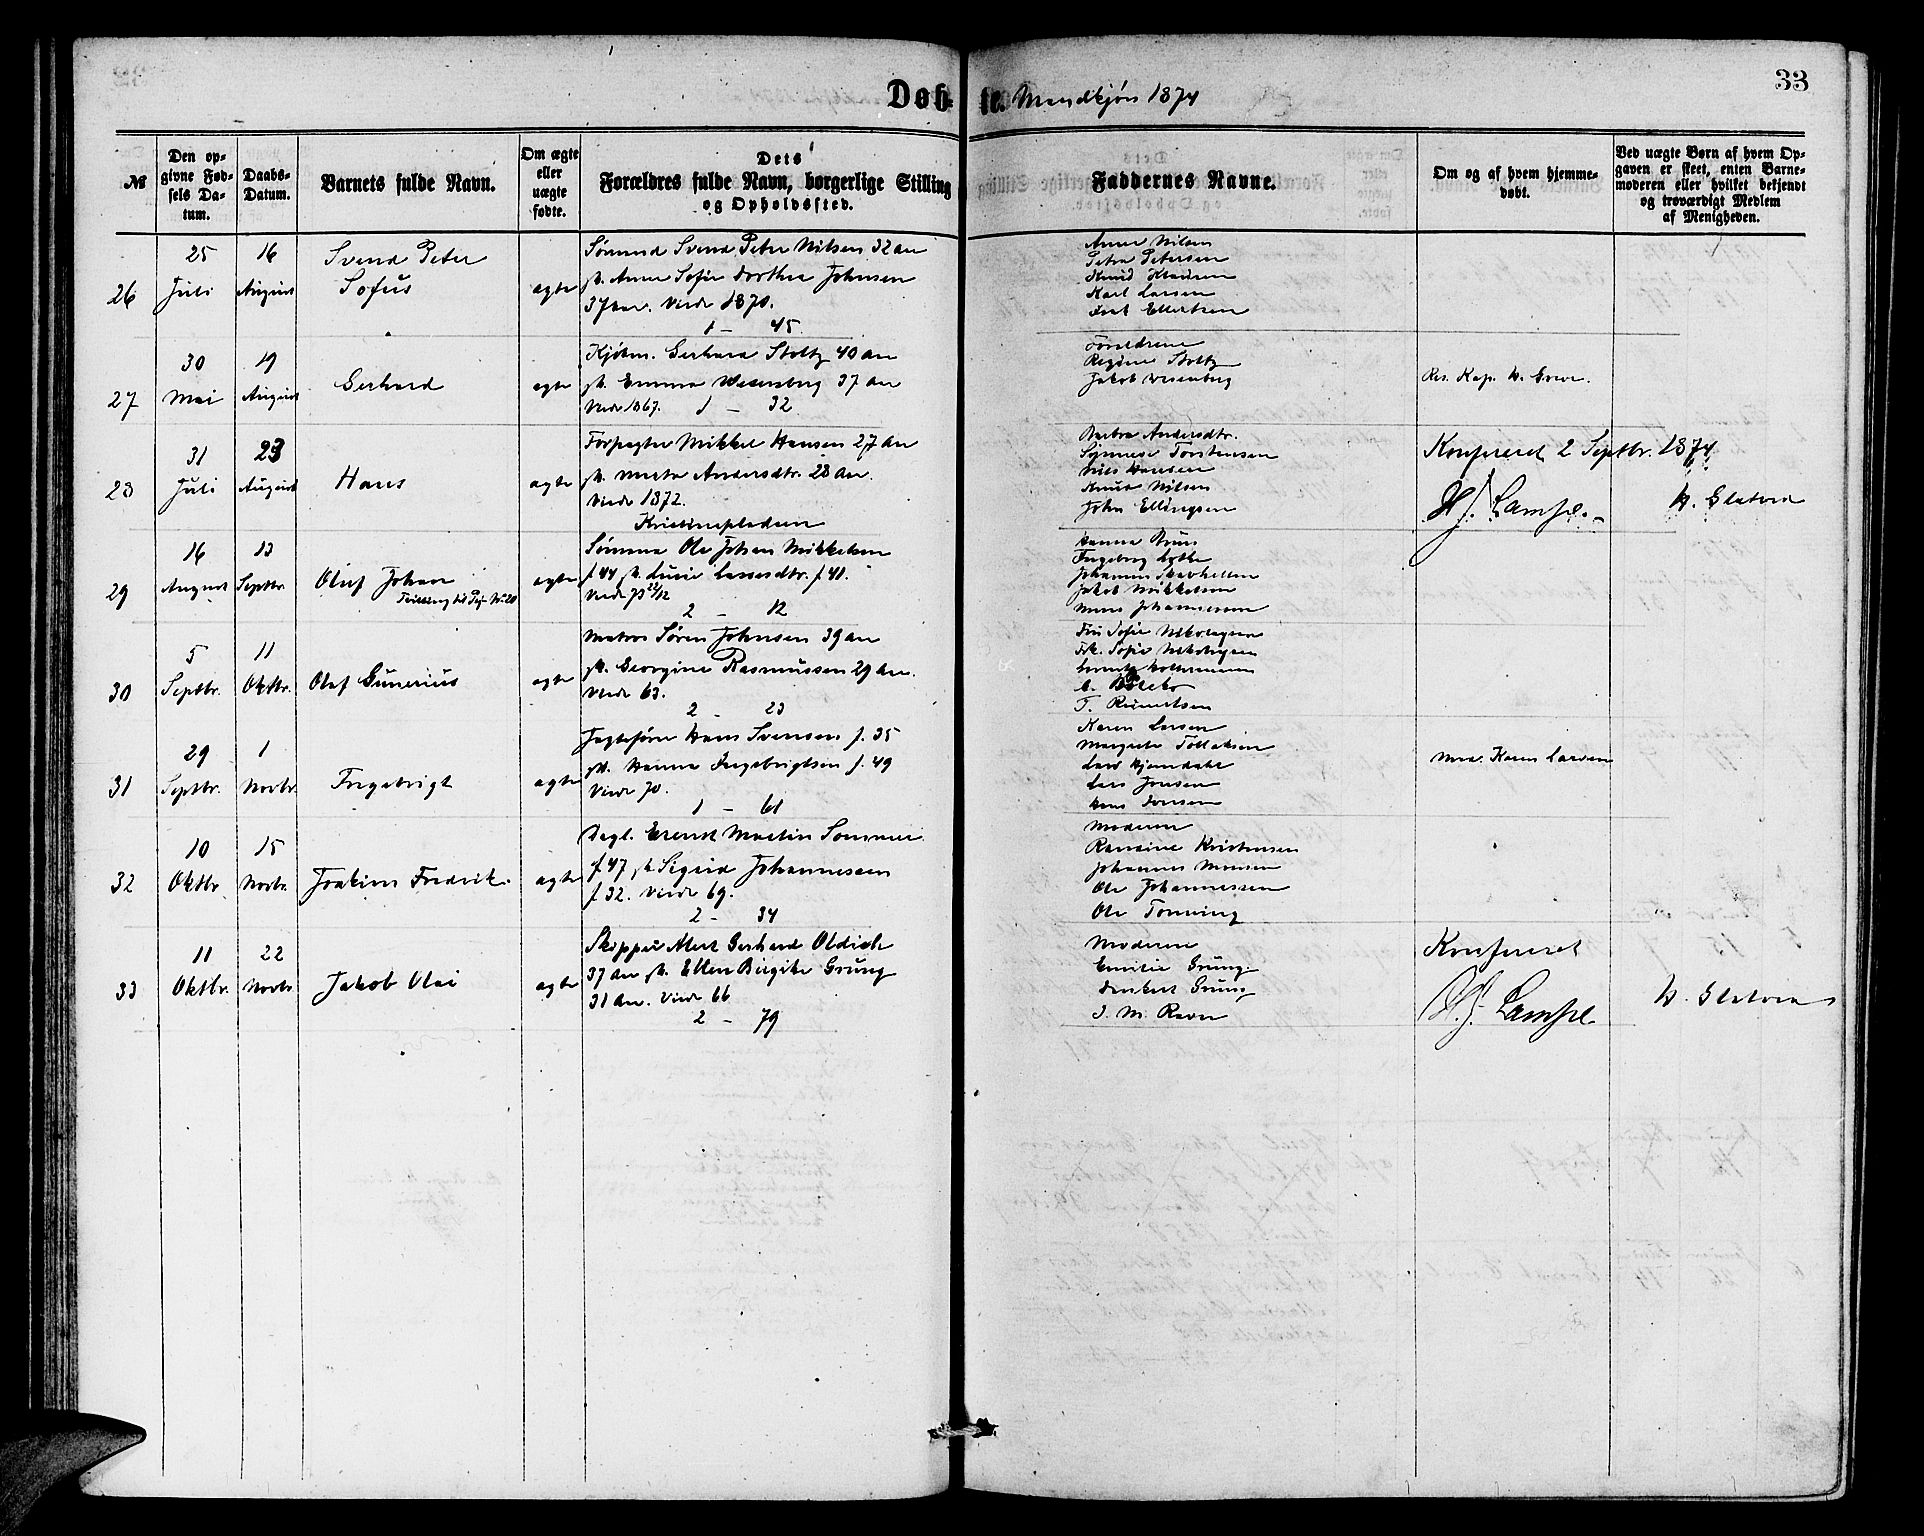 33
Døbte. Mandkjøn 1874
№
Den opgivne Fødsels Datum.
Daabs-Datum.
Barnets fulde Navn.
Om ægte eller uægte fødte.
Dets Forældres fulde Navn, borgerlige Stilling og Opholdssted.
Faddernes Navne.
Om og af hvem hjemmedøbt.
Ved uægte Børn af hvem Opgaven er skeet, enten Barnemoderen eller hvilket bekjendt og troværdigt Medlem af Menigheden.
26
25 Juli
16 August
Svend Peter
Sofus
ægte
Sømand Svend Peter Nilsen 32 Aar
Anne Sofie Dorthea Johnsen
37 Aar. Viede 1870.
1 – 45
Anne Nilsen
Petra Petersen
Knud
Karl Larsen
Ellertsen
27
30 Mai
19 August
Gerhard
ægte
Kjøbm. Gerhard Stoltz 40 Aar
Emma Wesenberg 37 Aar
Viede 1867. 1 – 32
Forældrene
Regine Stoltz
Jakob Wesenberg
Res. Kap.
28
31 Juli
23 August
Hans
ægte
Forpagter Mikkel Hansen 27 Aar
Marta Andersdtr. 28 Aar.
Viede 1872.
Barbra Andersdtr.
Torstensen
Nils Hansen
Knut Nilsen
John Ellingsen
Konfereret 2 Septbr. 1874
H. J. Lampe.
29
16 August
13 Septbr.
Oluf Johan
Tvilling til Pige No 20
ægte
Sømand Ole Johan Mikkelsen
f. 44 Lucie Lassesdtr. f. 41.
Viede 73
2 – 12
Hanna
Ingeborg
Johannes
Jakob Mikkelsen
Mons Johannesen
30
5 Septbr.
11 Oktbr.
Olaf Gunerius
ægte
Matros Søren Johnsen 39 Aar
Georgine Rasmussen 29 Aar.
Viede 63.
2 – 23
Fru Sofie Nikolaysen
Frk. Sofie Nikolaysen
31
29 Septbr.
1 Novbr.
Ingebrigt
ægte
Jagtefører Hans Svensen f. 35
Hanna Ingebrigtsen f. 49
Viede 70.
1 – 61
Karen Larsen
Margrete Tollaksen
Lars Hjemdahl
Lars Jonsen
Karen Larsen
32
10 Oktbr.
15 Novbr.
Joakim Fredrik.
ægte
Dagl. Erenst Martin Sommer
f. 47 Sigrid Johannessen
f. 32. Viede 69.
2 – 34
Moderen
Rasmine Kristensen
Johannes Monsen
Ole Johannessen
Ole Tonning
33
11 Oktbr.
22 Novbr.
Jakob Olai
ægte
Skipper Gerhard
37 Aar Ellen Birgitte Grung
31 Aar. Viede 66
2 – 79
Moderen
Emilie Grung
Grung
J. M. Ravn
Konfereret
H. J. Lampe